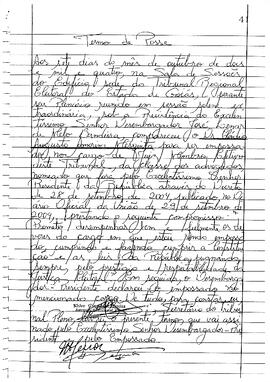 41
Termo de Posse
Aos seis dias do mês de outubro de dois
e mil e quatro, na Sala de Sessões
do Edifício sede do Tribunal Regional
Eleitoral do Estado de Goiás, perante
seu Plenário reunido em sessão
traordinária, sob a Presidência do Excelen
tíssimo Senhor Desembargador José Lenar
de Melo Bandeira, compareceu o Dr.
para ser empossa
do no cargo de Membro
deste Tribunal, classe dos advogados
nomeado que foi pelo Excelentíssimo Senhor
Presidente da República através do Decreto
de 28 de setembro de 2004, publicado no Di
ário Oficial da União de 29 de setembro de
2004, prestando o seguinte compromisso:
"Prometo desempenhar bem e fielmente os de
veres do cargo em que estou sendo empossa
do, cumprindo e fazendo cumprir a Constitui
ção e as leis da República, pugnando
sempre pelo prestígio e respeitabilidade da
Justiça Eleitoral". Em seguida, o Desembarga
dor-Presidente declarou-o empossado no
mencionado cargo. De tudo, para constar, eu
Secretário do Tribu
nal Pleno, lavrei o presente Termo que vai assi
nado pelo Excelentíssimo Senhor Desembargador-Pre
sidente e pelo Empossado.